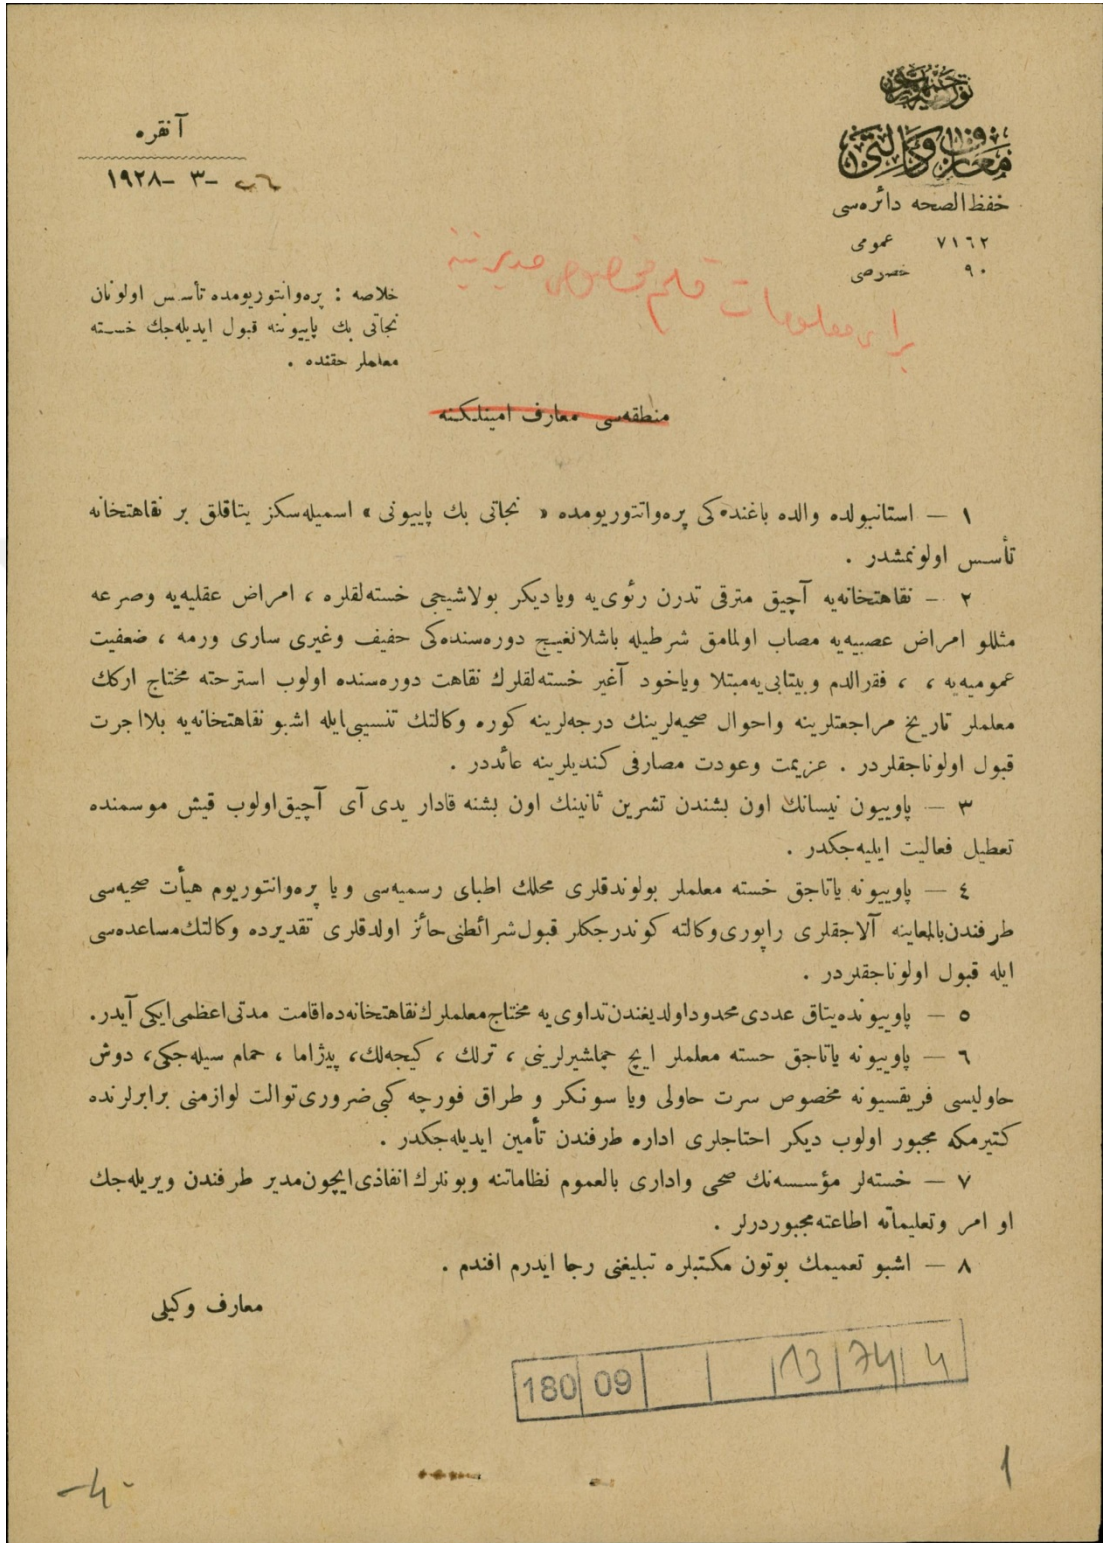 تورکیه جمهوریتی
معارف وکالتی
حفظ الصحه دائره‌سی
٧١٦٢ عمومی
٩٠ خصوصی
آنقره
-٣-١٩٢٨
برای معلومات قلم مخصوص مدیریتنه
خلاصه : پره‌وانتوریومده تأسس اولونان
نجاتی بك پاییوننه قبول ایدیله‌جك خسته
معلملر حقنده .
منطقه‌سی معارف امینلکنه
١ — استانبولده والده باغنده‌کی پره‌وانتوریومده « نجاتی بك پاییونی » اسمیله سکز یتاقلق بر نقاهتخانه
تأسس اولونمشدر .
٢ — نقاهتخانه‌یه آچیق مترقی تدرن رئوی‌یه ویا دیکر بولاشیجی خسته‌لقلره ، امراض عقلیه‌یه وصرعه
مثللو امراض عصبیه‌یه مصاب اولمامق شرطیله باشلانغیج دوره‌سنده‌کی خفیف وغیری ساری ورمه ، ضعفیت
عمومیه‌یه ، ، فقرالدم وبیتابی‌یه مبتلا ویاخود آغیر خسته‌لقلرك نقاهت دوره‌سنده اولوب استرحته محتاج ارکك
معلملر تاریخ مراجعتلرینه واحوال صحیه‌لرینك درجه‌لرینه کوره وکالتك تنسیبی ایله اشبو نقاهتخانه‌یه بلااجرت
قبول اولوناجقلردر . عزیمت وعودت مصارفی کندیلرینه عائددر .
٣ — پاوییون نیسانك اون بشندن تشرین ثانینك اون بشنه قادار یدی آی آچیق اولوب قیش موسمنده
تعطیل فعالیت ایلیه‌جکدر .
٤ — پاوییونه یاتاجق خسته معلملر بولوندقلری محللك اطبای رسمیه‌سی ویا پره‌وانتوریوم هیأت صحیه‌سی
طرفندن بالمعاینه آلاجقلری راپوری وکالته کوندرجکلر قبول شرائطنی حائز اولدقلری تقدیرده وکالتك مساعده‌سی
ایله قبول اولوناجقلردر .
٥ — پاوییونده یتاق عددی محدود اولدیغندن تداوی یه محتاج معلملرك نقاهتخانه‌ده اقامت مدتی اعظمی ایکی آیدر.
٦ — پاوییونه یاتاجق خسته معلملر ایچ چماشیرلرینی ، ترلك ، کیجه‌لك، پیژاما ، حمام سیله‌جکی، دوش
حاولیسی فریقسیونه مخصوص سرت حاولی ویا سونکر و طراق فورچه کبی ضروری توالت لوازمنی برابرلرنده
کتیرمکه مجبور اولوب دیکر احتاجلری اداره طرفندن تأمین ایدیله‌جکدر .
٧ — خسته‌لر مؤسسه‌نك صحی واداری بالعموم نظاماتنه وبونلرك انفاذی ایچون مدیر طرفندن ویریله‌جك
او امر وتعلیماته اطاعته مجبوردرلر .
٨ — اشبو تعمیمك بوتون مکتبلره تبلیغنی رجا ایدرم افندم .
معارف وکیلی
180 09 13 74 4
-4-
1